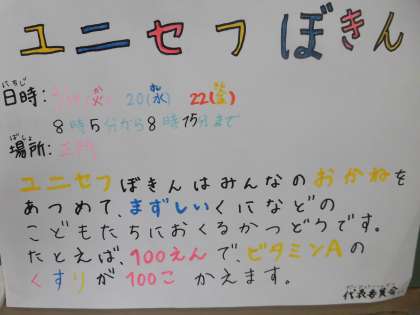 ユニセフぼきん
にちじ か すい きん
日時: (火) 20(水) 22(金)
8時5分から8時15分まで
ばしょ
場所:
ユニセフぼきんはみんなのおかねを
あつめて、まずしいくになどの
こどもたちにおくるかつどうです。
たとえば、100えんで、ビタミンAの
くすりが100こ かえます。
代表委員会